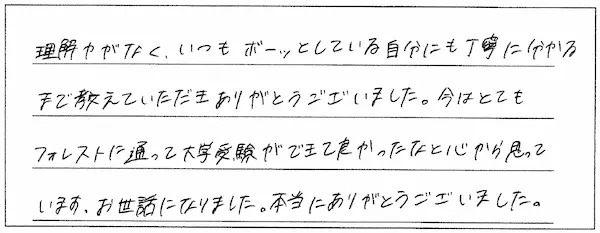 理解力がなく、いつもボーッとしている自分にも丁寧に分かる
まで教えていただきありがとうございました。今はとても
フォレストに通って大学受験ができて良かったなと心から思って
います。お世話になりました。本当にありがとうございました。